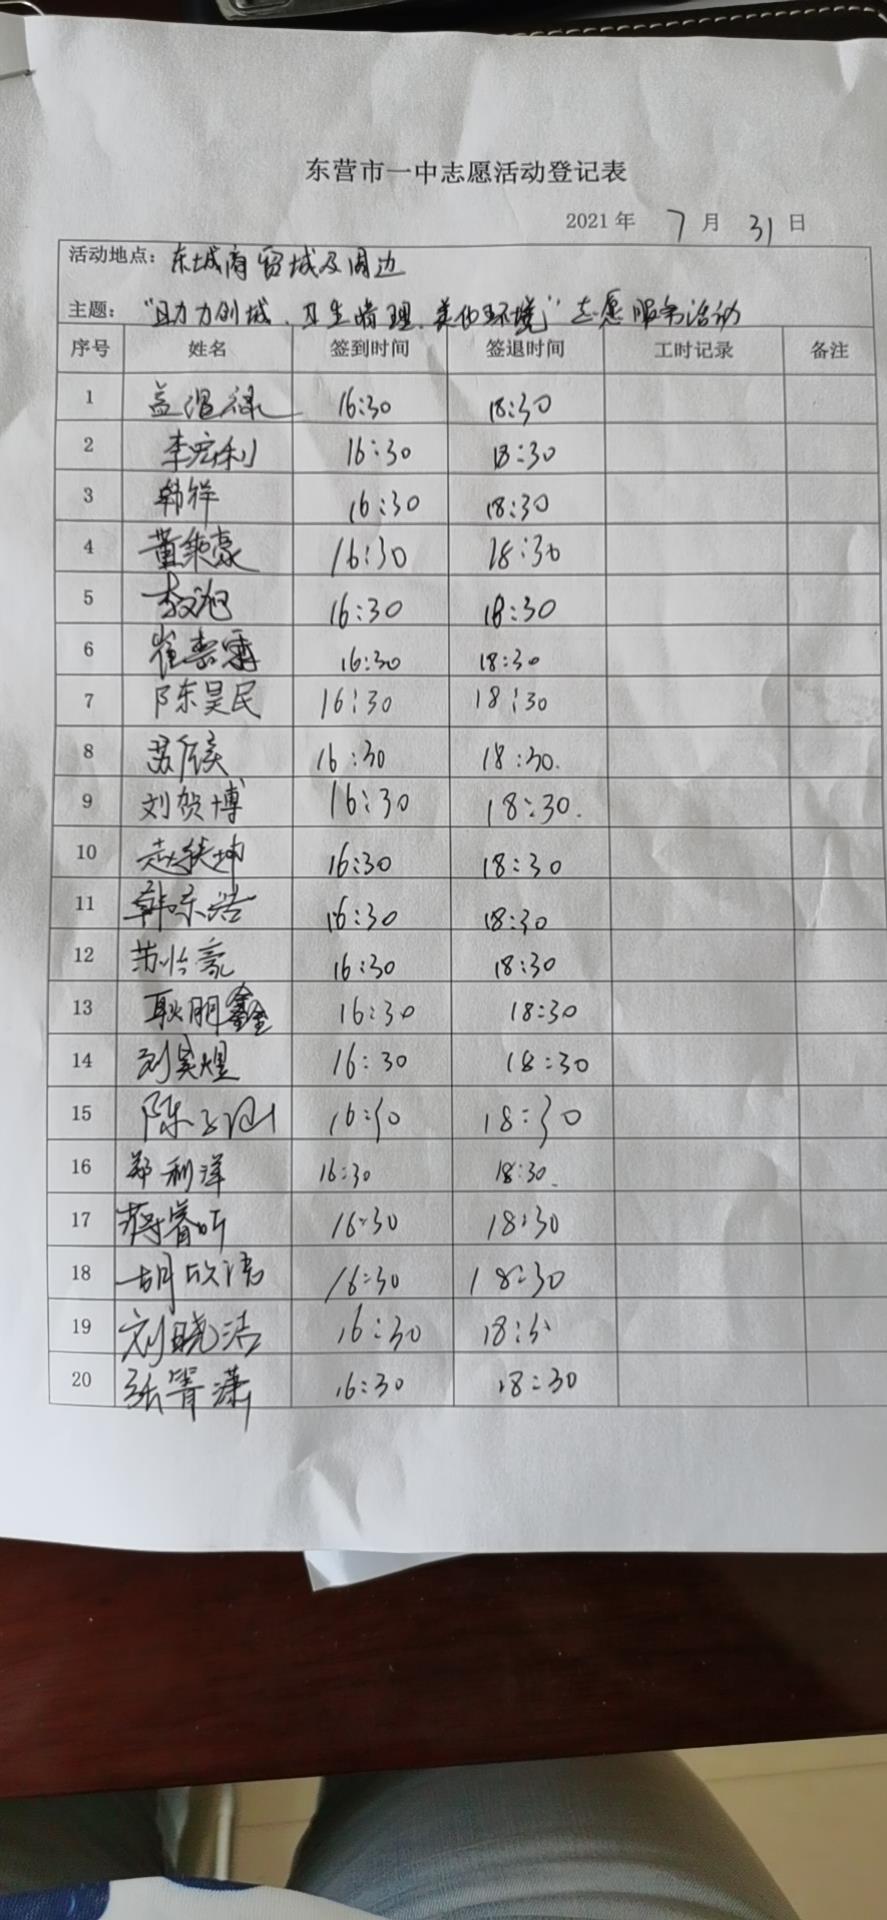 东营市一中志愿活动登记表
2021 年 7 月 31 日
活动地点：东城商贸城及周边
主题：“助力创城、卫生清理、美化环境”志愿服务活动
序号 姓名 签到时间 签退时间 工时记录 备注
1 16:30 18:30
2 李宏利 16:30 18:30
3 韩祥 16:30 18:30
4 董秉豪 16:30 18:30
5 16:30 18:30
6 16:30 18:30
7 陈昊民 16:30 18:30
8 16:30 18:30.
9 刘贺博 16:30 18:30.
10 16:30 18:30
11 韩东浩 16:30 18:30
12 苏怡豪 16:30 18:30
13 耿朋鑫 16:30 18:30
14 刘昊煜 16:30 18:30
15 16:30 18:30
16 郑利洋 16:30 18:30.
17 蒋睿昕 16:30 18:30
18 16:30 18:30
19 刘晓洁 16:30
20 张箐潇 16:30 18:30